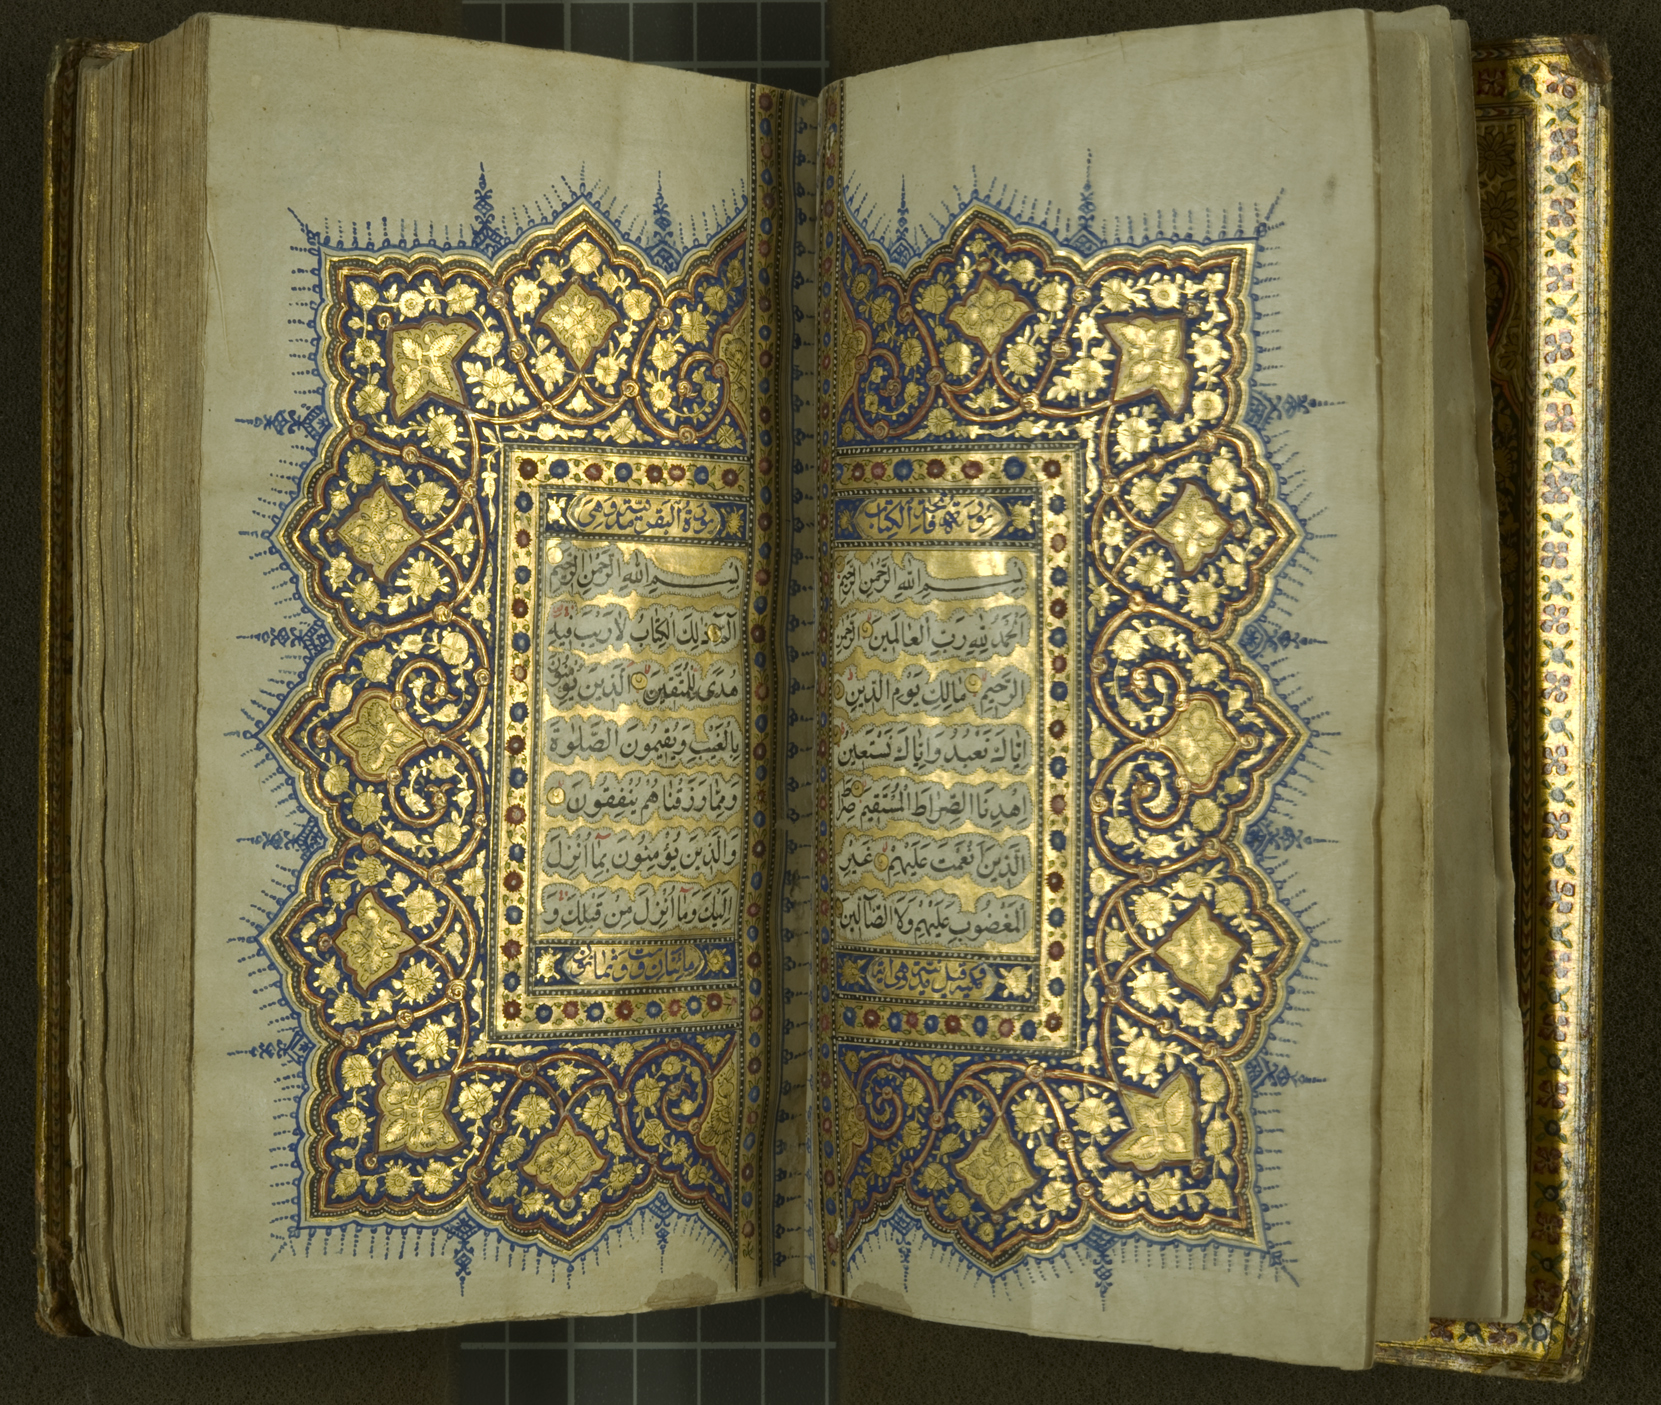 سورة فاتحة الكتاب
بِسْمِ اللهِ الرَّحْمٰنِ الرَّحِيمِ
اَلْحَمْدُ لِلّٰهِ رَبِّ الْعَالَمِينَ الرَّحْمٰنِ
الرَّحِيمِ مَالِكِ يَوْمِ الدِّينِ
اِيَّاكَ نَعْبُدُ وَاِيَّاكَ نَسْتَعِينُ
اِهْدِنَا الصِّرَاطَ الْمُسْتَقِيمَ صِرَاطَ
الَّذِينَ اَنْعَمْتَ عَلَيْهِمْ غَيْرِ
الْمَغْضُوبِ عَلَيْهِمْ وَلَا الضَّآلِّينَ
مكية وقيل مدنية وهي
سورة البقرة مدنية وهي
بِسْمِ اللهِ الرَّحْمٰنِ الرَّحِيمِ
الٓمٓ ذٰلِكَ الْكِتَابُ لَا رَيْبَ فِيهِ
هُدًى لِلْمُتَّقِينَ الَّذِينَ يُؤْمِنُونَ
بِالْغَيْبِ وَيُقِيمُونَ الصَّلٰوةَ
وَمِمَّا رَزَقْنَاهُمْ يُنْفِقُونَ
وَالَّذِينَ يُؤْمِنُونَ بِمَآ اُنْزِلَ
اِلَيْكَ وَمَآ اُنْزِلَ مِنْ قَبْلِكَ وَ
مائتان وست وثمانون